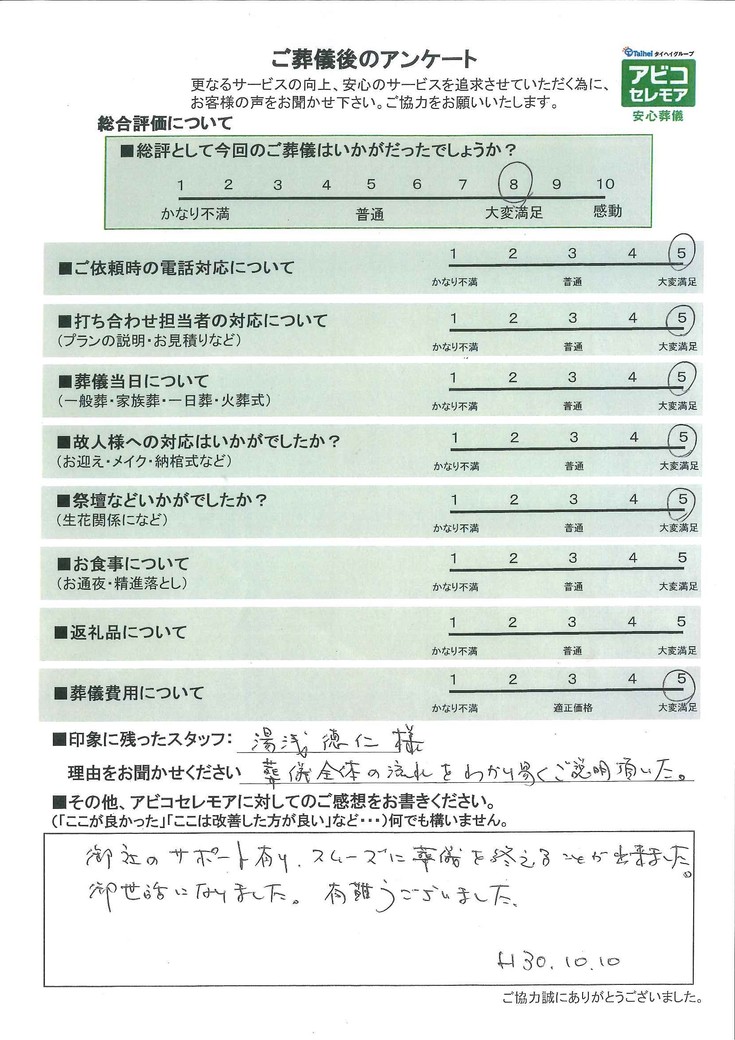 ご葬儀後のアンケート
Taihei タイヘイグループ
アビコ
セレモア
安心葬儀
更なるサービスの向上、安心のサービスを追求させていただく為に、
お客様の声をお聞かせ下さい。ご協力をお願いいたします。
総合評価について
■総評として今回のご葬儀はいかがだったでしょうか?
1 2 3 4 5 6 7 8 9 10
かなり不満 普通 大変満足 感動
■ご依頼時の電話対応について
1 2 3 4 5
かなり不満 普通 大変満足
■打ち合わせ担当者の対応について
(プランの説明・お見積りなど)
1 2 3 4 5
かなり不満 普通 大変満足
■葬儀当日について
(一般葬・家族葬・一日葬・火葬式)
1 2 3 4 5
かなり不満 普通 大変満足
■故人様への対応はいかがでしたか?
(お迎え・メイク・納棺式など)
1 2 3 4 5
かなり不満 普通 大変満足
■祭壇などいかがでしたか?
(生花関係になど)
1 2 3 4 5
かなり不満 普通 大変満足
■お食事について
(お通夜・精進落とし)
1 2 3 4 5
かなり不満 普通 大変満足
■返礼品について
1 2 3 4 5
かなり不満 普通 大変満足
■葬儀費用について
1 2 3 4 5
かなり不満 適正価格 大変満足
■印象に残ったスタッフ: 湯浅 德仁 様
理由をお聞かせください 葬儀全体の流れをわかり易くご説明頂いた。
■その他、アビコセレモアに対してのご感想をお書きください。
(「ここが良かった」「ここは改善した方が良い」など・・・)何でも構いません。
御社のサポート有り、スムーズに葬儀を終えることが出来ました。
御世話になりました。 有難うございました。
H30.10.10
ご協力誠にありがとうございました。